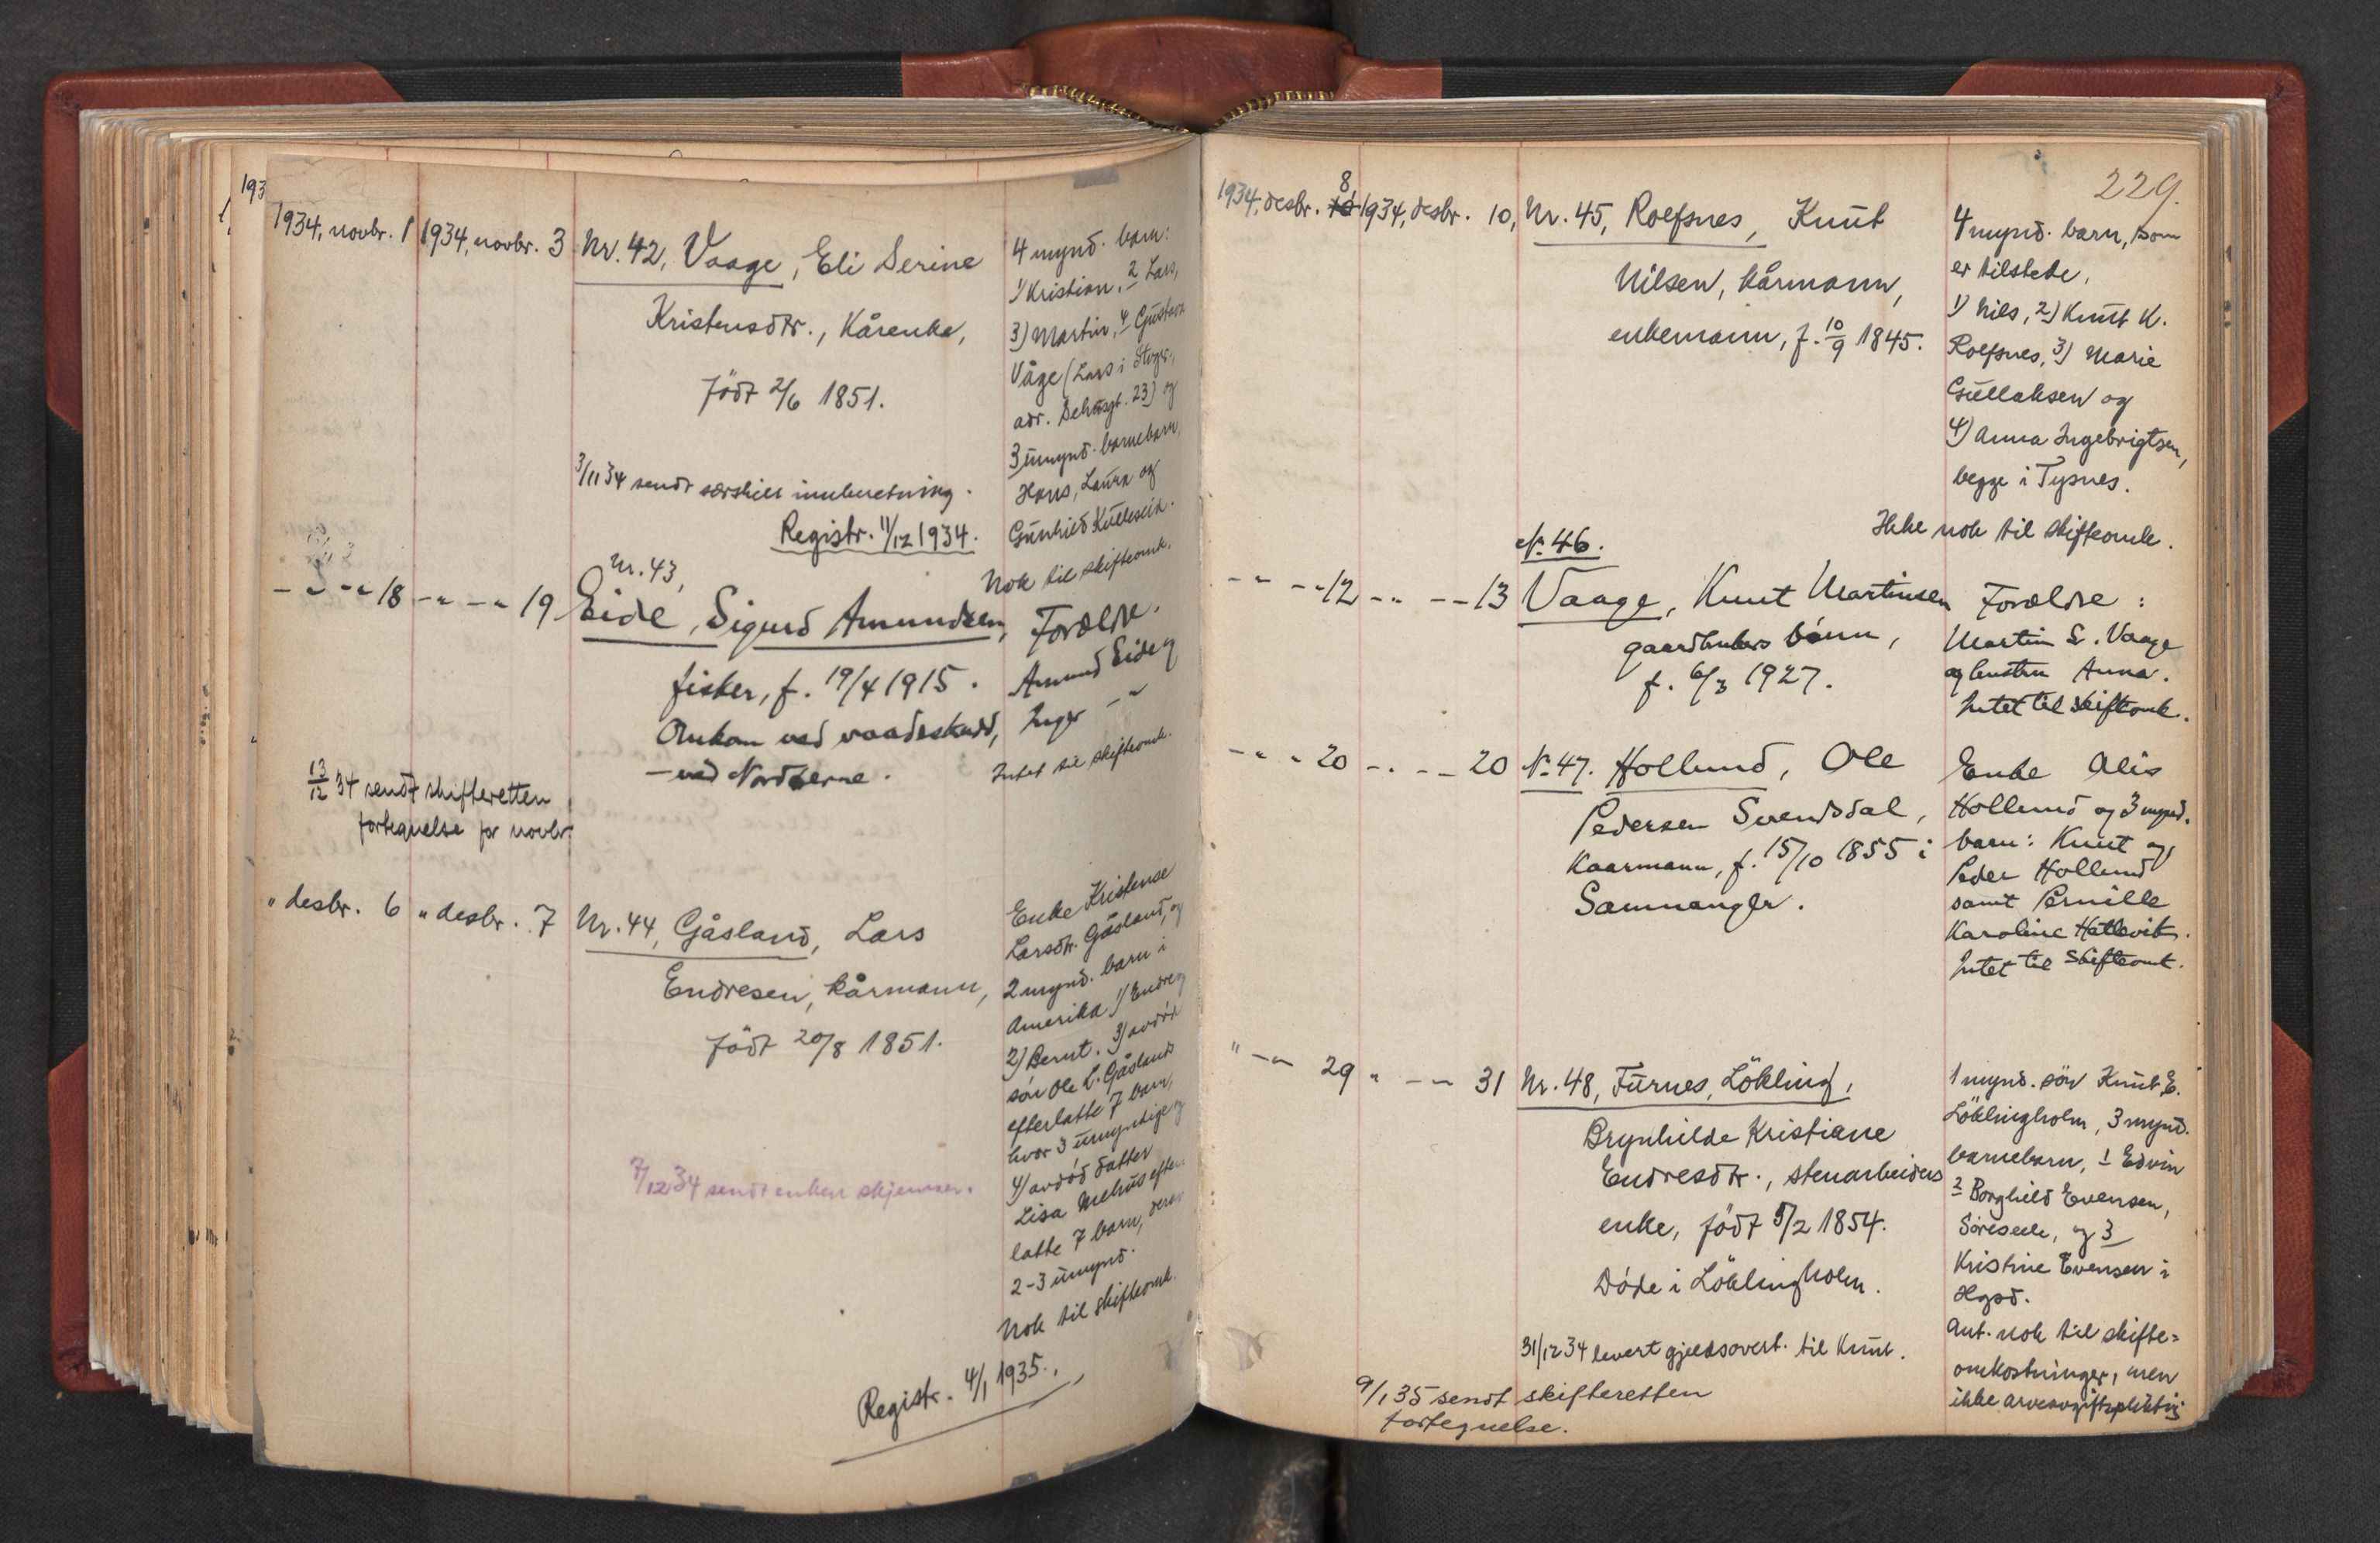 193
1934, novbr. 1 1934, novbr. 3 Nr. 42, Vaage, Eli Serine
Kristensdtr., Kårenke,
född 2/6 1851.
3/11 34 sendt særskilt innberetning.
Registr. 11/12 1934.
4 mynd. barn:
1) Kristian, 2 Lars,
3) Martin, 4 Gustava
Våge (Lars i Stvgr.,
adr. 23) og
3 umynd. barnebarn,
Hans, Laura og
Gunhild Kulleseid.
Nok til skifteomk.
Nr. 43,
- " - " 18 - " - " 19 Eide, Sigurd Amundsen,
fisker, f. 19/4 1915.
Omkom ved vaadeskudd,
- ved Nordøerne.
Forældre.
Amund Eide og
Inger - "
Intet til skifteomk.
13/12 34 sendt skifteretten
fortegnelse for novbr.
" desbr. 6 " desbr. 7 Nr. 44, Gåsland, Lars
Endresen, kårmann,
född 20/8 1851.
7/12 34 sendt enken skjemaer.
Enke Kristense
Larsdtr. Gåsland, og
2 mynd. barn i
Amerika 1) Endre og
2) Bernt. 3) avdöd
sön Ole L. Gåsland
efterlatte 7 barn,
hvor 3 umyndige og
4) avdöd datter
Lisa Mehus efter-
latte 7 barn, derav
2-3 umynd.
Nok til skifteomk.
Registr. 4/1 1935.
229.
8
1934, desbr. 10 1934, desbr. 10, Nr. 45, Roefsnes, Knut
Nilsen, kårmann,
enkemann, f. 10/9 1845.
4 mynd. barn, som
er tilstede,
1) Nils, 2) Knut K.
Roefsnes, 3) Marie
Gullaksen og
4) Anna Ingebrigtsen,
begge i Tysnes.
Ikke nok til skifteomk.
No. 46.
- " - " 12 - " - - 13 Vaage, Knut Martinsen
gaardbrukers barn,
f. 6/3 1927.
Forældre:
Martin S. Vaage
og hustru Anna.
Intet til skifteomk.
- " - 20 - " - - 20 No. 47. Hollund, Ole
Pedersen Svendsdal,
Kaarmann, f. 15/10 1855 i
Samnanger.
Enke Alis
Hollund og 3 mynd.
barn: Knut og
Peder Hollund
samt Pernille
Karoline Hatlevik.
Intet til skifteomk.
" - " 29 " - - 31 Nr. 48, Furnes, Lökling,
Brynhilde Kristiane
Endresdtr., stenarbeiders
enke, född 5/2 1854.
Döde i Löklingholm.
31/12 34 levert gjeldsovert. til Knut.
1 mynd. sön Knut E.
Löklingholm, 3 mynd.
barnebarn, 1 Edvin
2 Borghild Evensen,
og 3
Kristine Evensen i
Hgsd.
Ant. nok til skifte=
omkostninger, men
ikke arveavgiftspliktig
9/1 35 sendt skifteretten
fortegnelse.